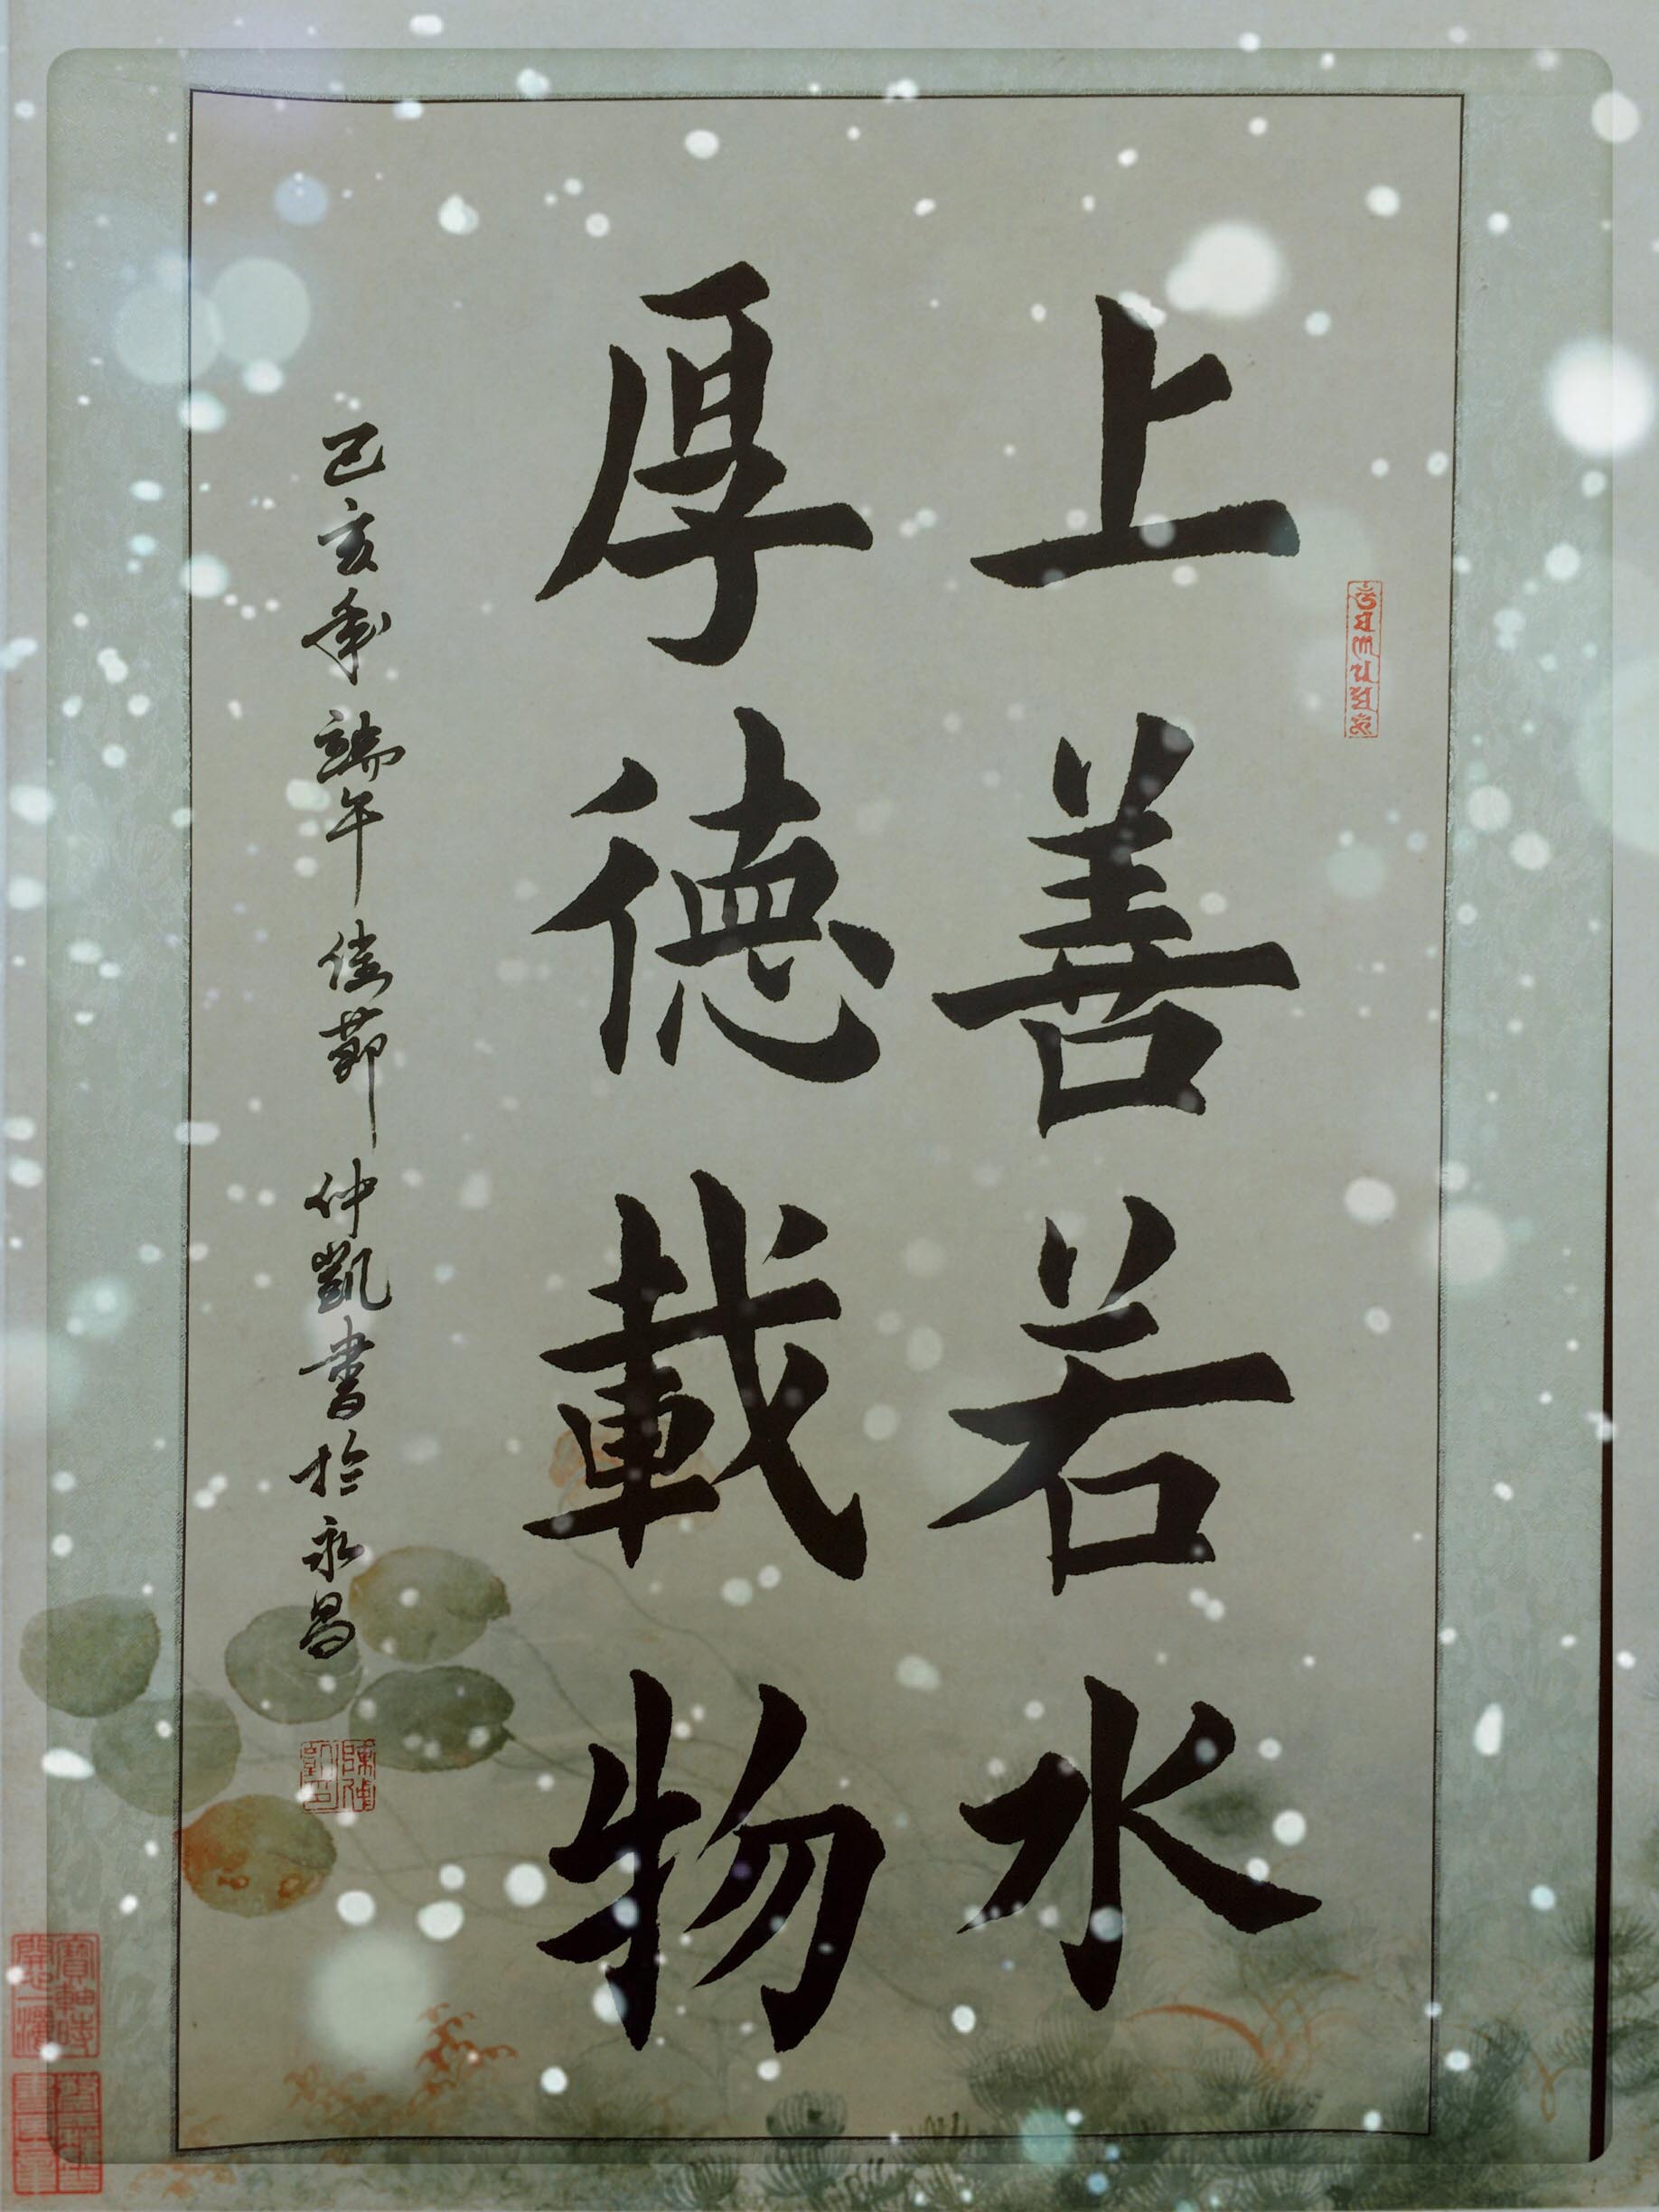 上善若水
厚德載物
己亥年端午佳節仲凱書於永昌